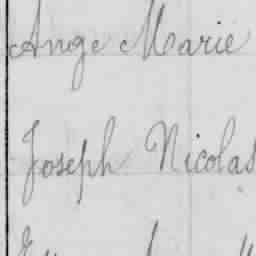 Ange Marie
Joseph Nicolas